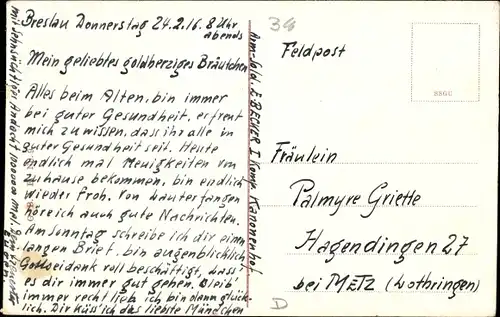 Breslau Donnerstag 24.2.16. 8 Uhr
abends
Mein geliebtes goldherziges Bräutchen
Alles beim Alten, bin immer
bei guter Gesundheit. erfreut
mich zu wissen, dass ihr alle in
guter Gesundheit seit. Heute
endlich mal Neuigkeiten von
zuhause bekommen, bin endlich
wieder froh. Von Lauterfangen
höre ich auch gute Nachrichten.
Am Sonntag schreibe ich dir einen
langen Brief. bin augenblicklich
Gottseidank voll beschäftigt. Dass
es dir immer gut gehen. Bleib'
immer recht lieb ich bin dann glück-
lich. Dir küss ich das liebste Mündchen
mit sehnsüchtiger Andacht 1000000 mal. Dein
Arm-Sold. E BECKER I Komp. Kanonenhof.
34
Feldpost
Fräulein
Palmyre Griette
Hagendingen 27
bei METZ (Lothringen)
D